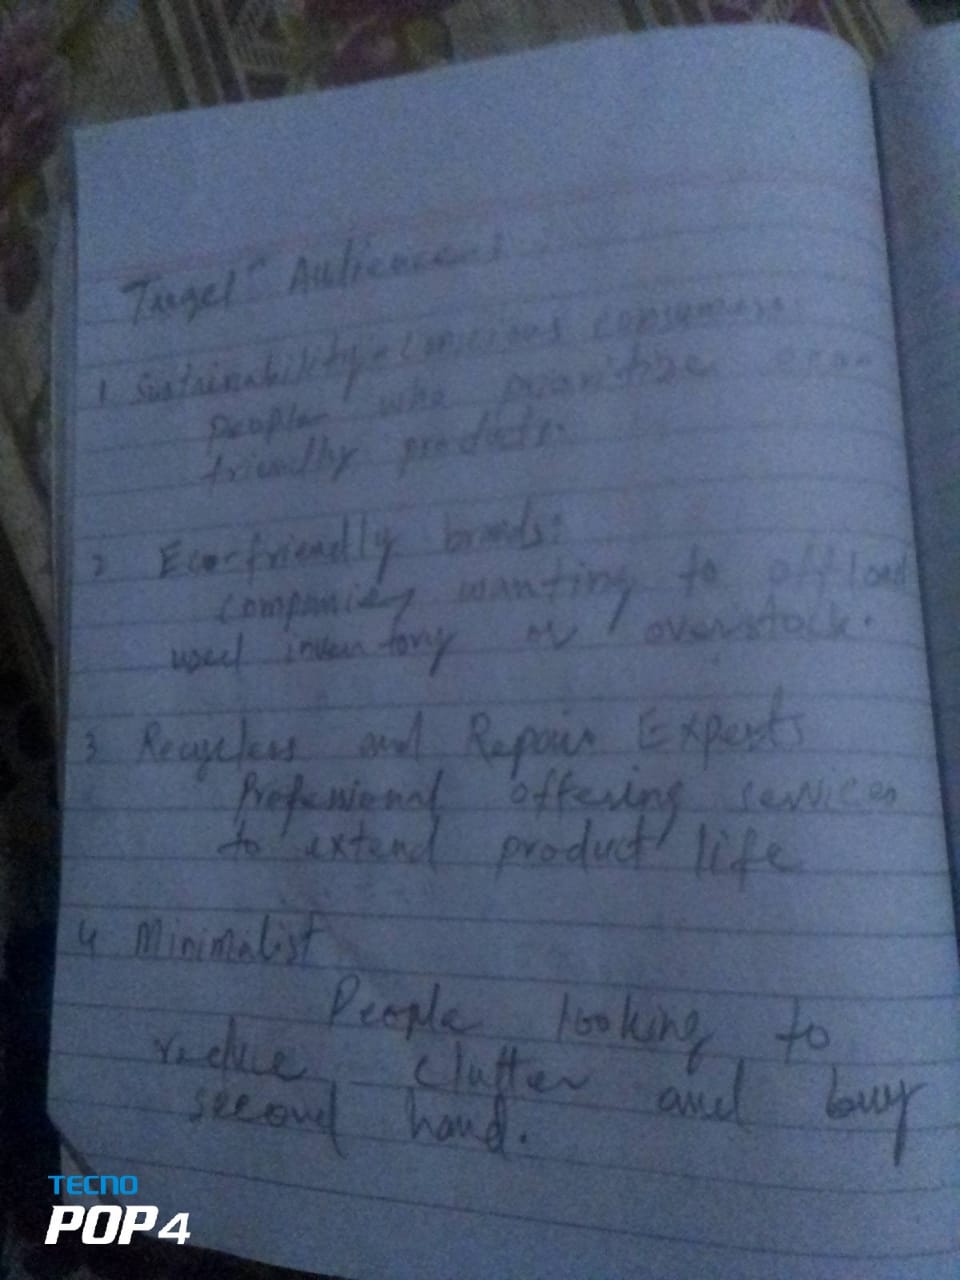 Target Audience:
1 Sustainability-conscious consumers:
people who prioritize eco-
friendly products.
2 Eco-friendly brands:
companies wanting to offload
used inventory or overstock.
3 Recyclers and Repair Experts
Professional offering services
to extend product life
4 Minimalist
People looking to
reduce clutter and buy
second hand.
TECNO
POP 4